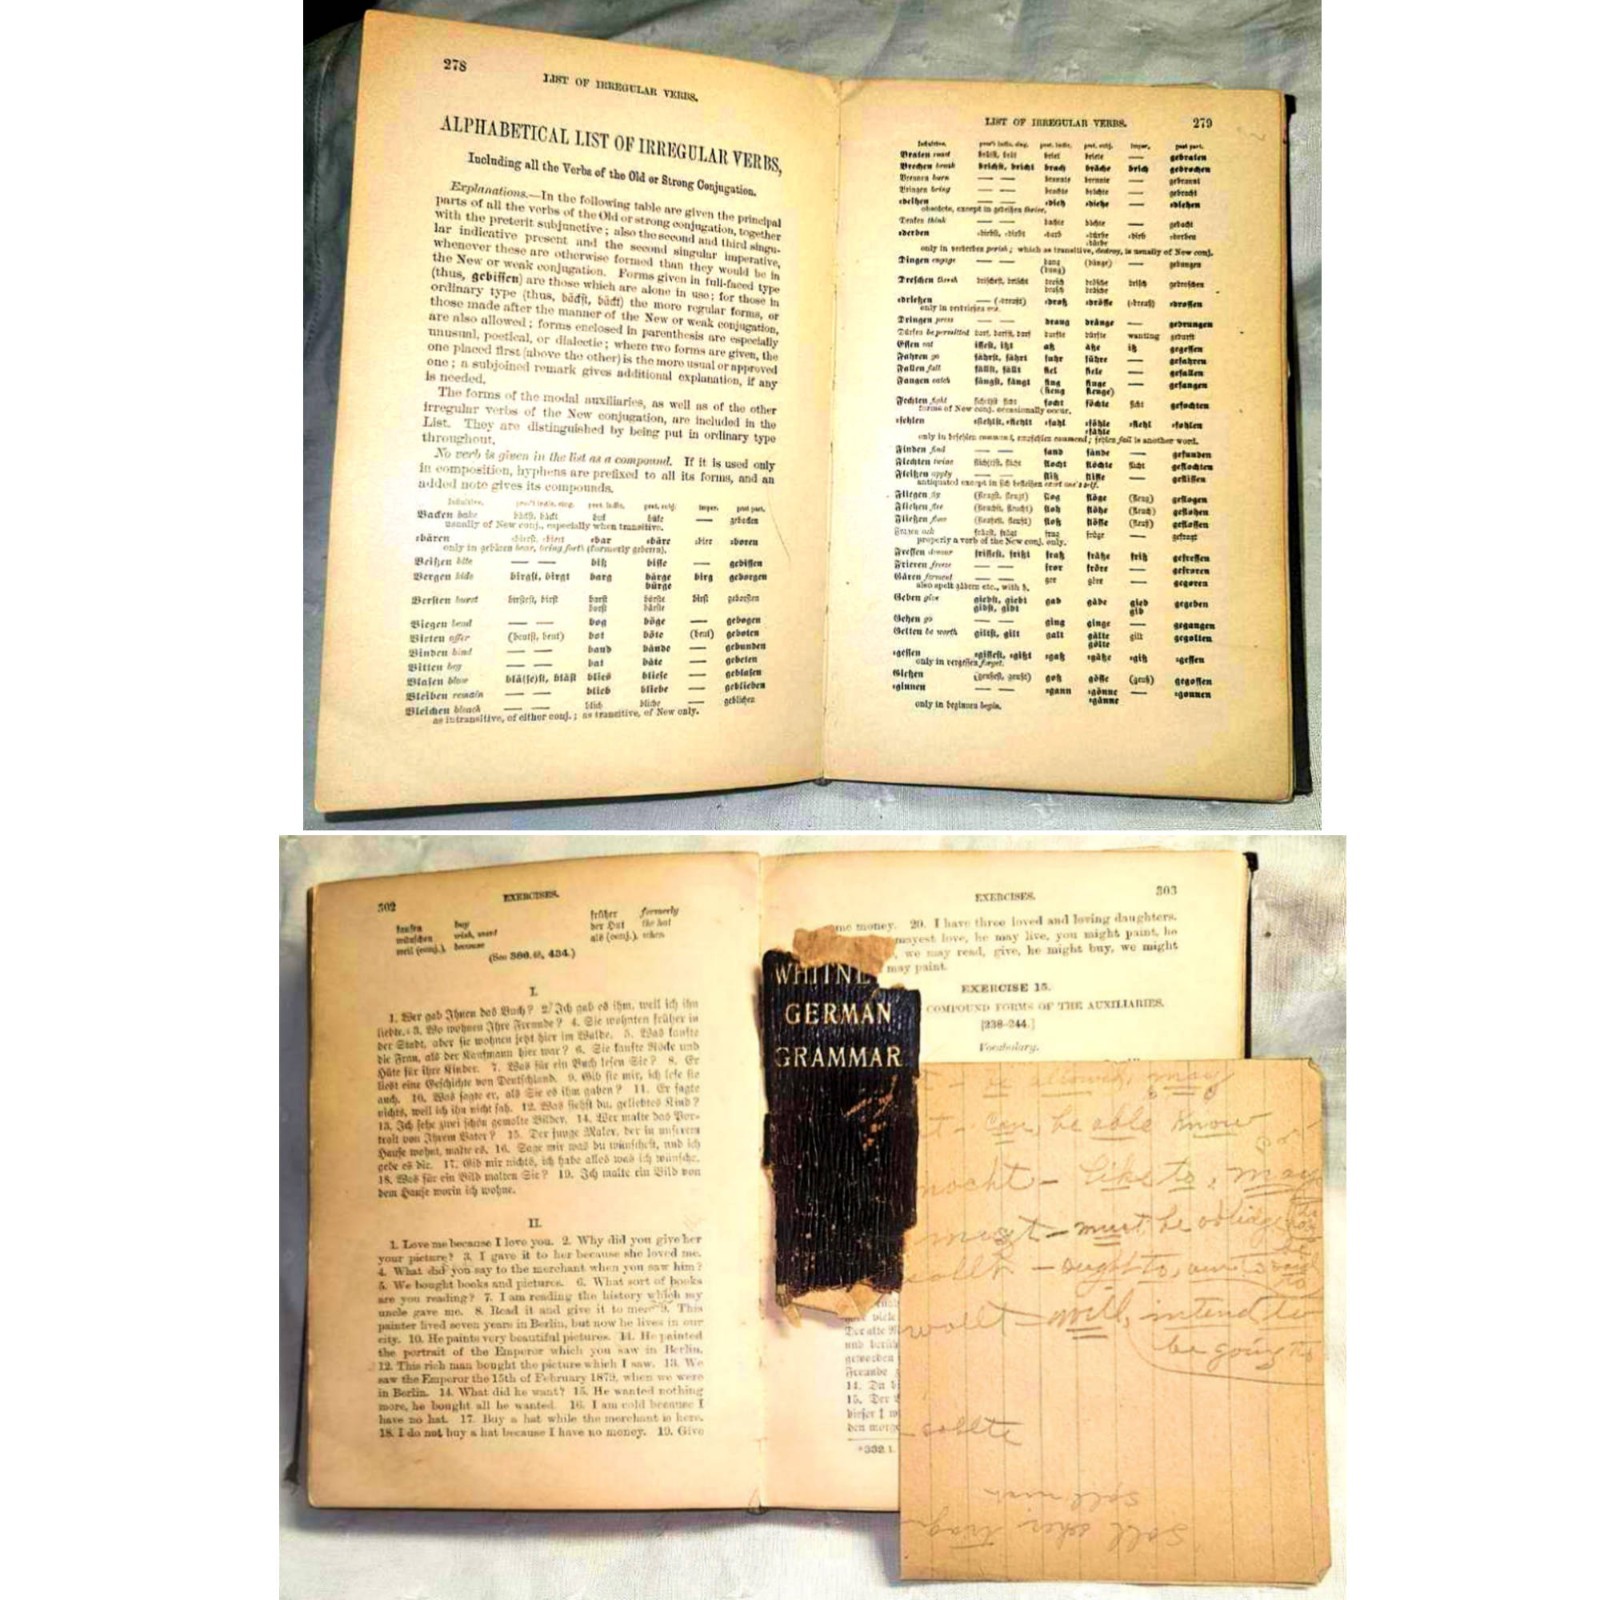 278
LIST OF IRREGULAR VERBS.
ALPHABETICAL LIST OF IRREGULAR VERBS,
Including all the Verbs of the Old or Strong Conjugation.
Explanations.—In the following table are given the principal
parts of all the verbs of the Old or strong conjugation, together
with the preterit subjunctive; also the second and third singu-
lar indicative present and the second singular imperative,
whenever these are otherwise formed than they would be in
the New or weak conjugation. Forms given in full-faced type
(thus, gebissen) are those which are alone in use; for those in
ordinary type (thus, bäckst, bäckt) the more regular forms, or
those made after the manner of the New or weak conjugation,
are also allowed; forms enclosed in parenthesis are especially
unusual, poetical, or dialectic; where two forms are given, the
one placed first (above the other) is the more usual or approved
one; a subjoined remark gives additional explanation, if any
is needed.
The forms of the modal auxiliaries, as well as of the other
irregular verbs of the New conjugation, are included in the
List. They are distinguished by being put in ordinary type
throughout.
No verb is given in the list as a compound. If it is used only
in composition, hyphens are prefixed to all its forms, and an
added note gives its compounds.
Infinitive. pres't indic. sing. pret. indic. pret. subj. imper. past part.
Backen bake bäckst, bäckt buk büke — gebacken
usually of New conj., especially when transitive.
-bären -bierst, -biert -bar -bäre -bier -boren
only in gebären bear, bring forth (formerly gebern).
Beißen bite — — biß bisse — gebissen
Bergen hide birgst, birgt barg bärge birg geborgen
bürge
Bersten burst birstest, birst barst bärste birst geborsten
borst börste
Biegen bend — — bog böge — gebogen
Bieten offer (beutst, beut) bot böte (beut) geboten
Binden bind — — band bände — gebunden
Bitten beg — — bat bäte — gebeten
Blasen blow bläs(es)t, bläst blies bliese — geblasen
Bleiben remain — — blieb bliebe — geblieben
Bleichen bleach — — blich bliche — geblichen
as intransitive, of either conj.; as transitive, of New only.
LIST OF IRREGULAR VERBS.
279
Infinitive. pres't indic. sing. pret. indic. pret. subj. imper. past part.
Braten roast brätst, brät briet briete — gebraten
Brechen break brichst, bricht brach bräche brich gebrochen
Brennen burn — — brannte brennte — gebrannt
Bringen bring — — brachte brächte — gebracht
-deihen — — -dieh -diehe — -diehen
obsolete, except in gedeihen thrive.
Denken think — — dachte dächte — gedacht
-derben -dirbst, -dirbt -darb -dürbe -dirb -dorben
-därbe
only in verderben perish; which as transitive, destroy, is usually of New conj.
Dingen engage — — dung (dünge) — gedungen
(dang)
Dreschen thresh drischest, drischt drosch drösche drisch gedroschen
drasch dräsche
-drießen — (-dreußt) -droß -drösse (-dreuß) -drossen
only in verdrießen vex.
Dringen press — — drang dränge — gedrungen
Dürfen be permitted darf, darfst, darf durfte dürfte wanting gedurft
Essen eat issest, ißt aß äße iß gegessen
Fahren go fährst, fährt fuhr führe — gefahren
Fallen fall fällst, fällt fiel fiele — gefallen
Fangen catch fängst, fängt fing finge — gefangen
(fieng fienge)
Fechten fight fichtst, ficht focht föchte ficht gefochten
forms of New conj. occasionally occur.
-fehlen -fiehlst, -fiehlt -fahl -föhle -fiehl -fohlen
-fähle
only in befehlen command, empfehlen commend; fehlen fail is another word.
Finden find — — fand fände — gefunden
Flechten twine flichtst, flicht flocht flöchte flicht geflochten
Fleißen apply — — fliß flisse — geflissen
antiquated except in sich befleißen exert one's self.
Fliegen fly (fleugst, fleugt) flog flöge (fleug) geflogen
Fliehen flee (fleuchst, fleucht) floh flöhe (fleuch) geflohen
Fließen flow (fleußest, fleußt) floß flösse (fleuß) geflossen
Fragen ask frägst, frägt frug früge — gefragt
properly a verb of the New conj. only.
Fressen devour frissest, frißt fraß fräße friß gefressen
Frieren freeze — — fror fröre — gefroren
Gären ferment — — gor göre — gegoren
also spelt gähren etc., with h.
Geben give giebst, giebt gab gäbe gieb gegeben
gibst, gibt gib
Gehen go — — ging ginge — gegangen
Gelten be worth giltst, gilt galt gälte gilt gegolten
gölte
-gessen -gissest, -gißt -gaß -gäße -giß -gessen
only in vergessen forget.
Gießen (geußest, geußt) goß gösse (geuß) gegossen
-ginnen — — -gann -gönne — -gonnen
-gänne
only in beginnen begin.
302
EXERCISES.
kaufen buy früher formerly
wünschen wish, want der Hut the hat
weil (conj.), because als (conj.), when
(See 386.4b, 434.)
I.
1. Wer gab Ihnen das Buch? 2. Ich gab es ihm, weil ich ihn
liebte. 3. Wo wohnen Ihre Freunde? 4. Sie wohnten früher in
der Stadt, aber sie wohnen jetzt hier im Walde. 5. Was kaufte
die Frau, als der Kaufmann hier war? 6. Sie kaufte Röcke und
Hüte für ihre Kinder. 7. Was für ein Buch lesen Sie? 8. Er
liest eine Geschichte von Deutschland. 9. Gib sie mir, ich lese sie
auch. 10. Was sagte er, als Sie es ihm gaben? 11. Er sagte
nichts, weil ich ihn nicht sah. 12. Was siehst du, geliebtes Kind?
13. Ich sehe zwei schön gemalte Bilder. 14. Wer malte das Por-
trait von Ihrem Vater? 15. Der junge Maler, der in unserem
Hause wohnt, malte es. 16. Sage mir was du wünschest, und ich
gebe es dir. 17. Gib mir nichts, ich habe alles was ich wünsche.
18. Was für ein Bild malten Sie? 19. Ich malte ein Bild von
dem Hause worin ich wohne.
II.
1. Love me because I love you. 2. Why did you give her
your picture? 3. I gave it to her because she loved me.
4. What did you say to the merchant when you saw him?
5. We bought books and pictures. 6. What sort of books
are you reading? 7. I am reading the history which my
uncle gave me. 8. Read it and give it to me. 9. This
painter lived seven years in Berlin, but now he lives in our
city. 10. He paints very beautiful pictures. 11. He painted
the portrait of the Emperor which you saw in Berlin.
12. This rich man bought the picture which I saw. 13. We
saw the Emperor the 15th of February 1879, when we were
in Berlin. 14. What did he want? 15. He wanted nothing
more, he bought all he wanted. 16. I am cold because I
have no hat. 17. Buy a hat while the merchant is here.
18. I do not buy a hat because I have no money. 19. Give
EXERCISES.
303
me money. 20. I have three loved and loving daughters.
mayest love, he may live, you might paint, he
we may read, give, he might buy, we might
may paint.
EXERCISE 15.
COMPOUND FORMS OF THE AUXILIARIES.
[238-244.]
Vocabulary.
WHITNE
GERMAN
GRAMMAR
viele
Der alte M
und berüh
geworden
Freunde
14. Du b
15. Der
dieser
den morge
*332.1.
be allowed, may
can, be able know
mocht - like to, may
must - must, be obliged
sollt - ought to,
wollt - will, intend to
be going to
sollte